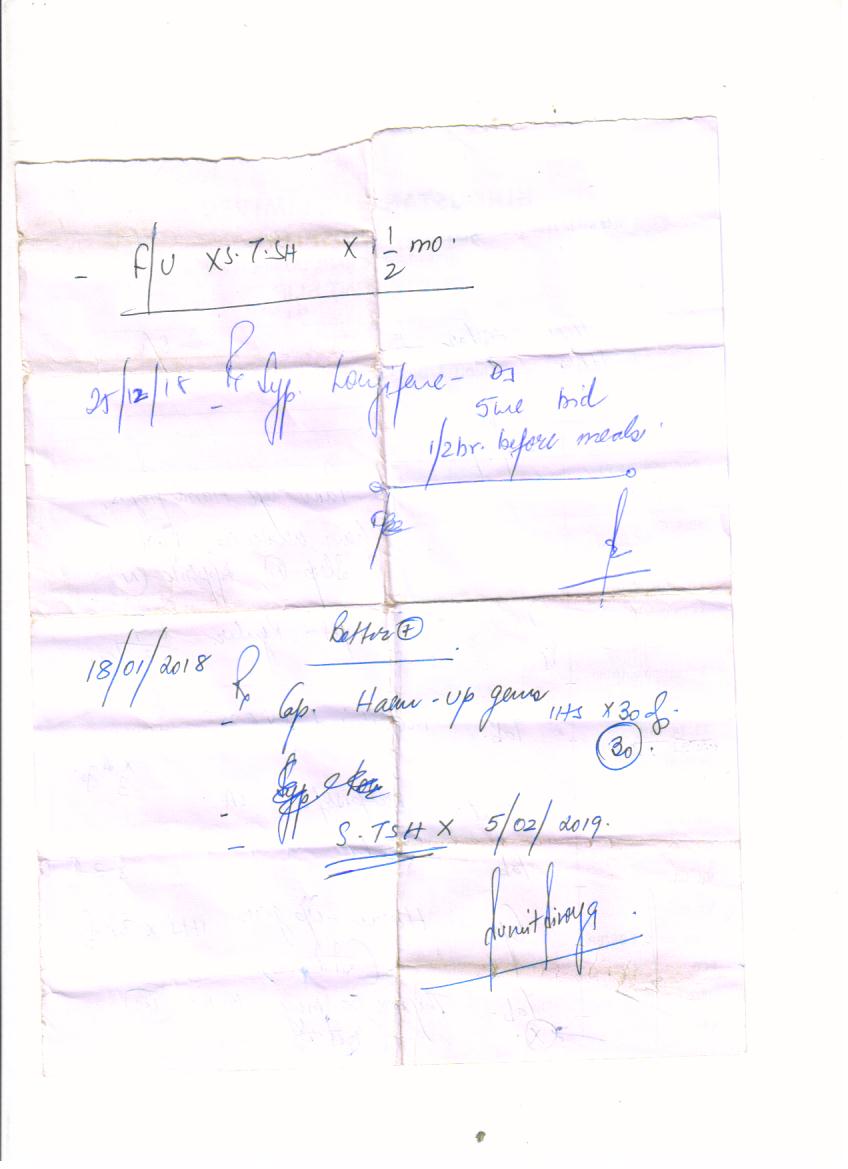 - F/U X S.T.SH X 1 1/2 mo.
25/12/18 Rx Syp. Longifene - DS
- 5ml bid
1/2 hr. before meals.
Better +
18/01/2018 Rx
- Cap. Haem-up gems 1HS X 30 d.
30.
- S.TSH X 5/02/2019.